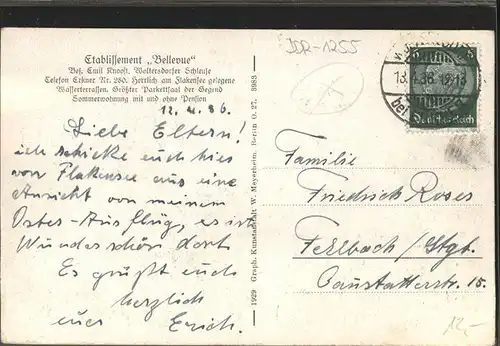 Etablissement „Bellevue“
Bes. Emil Knospf. Woltersdorfer Schleuse
Telefon Erkner Nr. 280. Herrlich am Flakensee gelegene
Wasserterrassen. Größter Parkettsaal der Gegend
Sommerwohnung mit und ohne Pension
12. 4. 36.
Liebe Eltern!
ich schicke euch hier
vom Flakensee aus eine
Ansicht von meinem
Oster-Ausflug, es ist
Wunderschön dort
Es grüßt euch
herzlich
euer Erich.
1929 Graph. Kunstanstalt W. Meyerheim, Berlin O. 27. 3983
DDR-1255
13.4.36
bei
Deutsches Reich
Familie
Friedrich Roses
Fellbach / Stgt.
Cannstatterstr. 15.
12,-